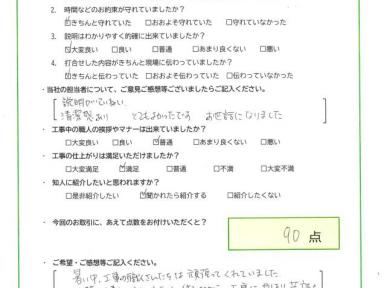 2. 時間などのお約束が守れていましたか?
☑きちんと守れていた □おおよそ守れていた □守れていなかった
3. 説明はわかりやすく的確に出来ていましたか?
☑大変良い □良い □普通 □あまり良くない □悪い
4. 打合せした内容がきちんと現場に伝わっていましたか?
☑きちんと伝わっていた □おおよそ伝わっていた □伝わっていなかった
・当社の担当者について、ご意見ご感想等ございましたらご記入ください。
説明がていねい
清潔感あり とてもよかったです お世話になりました
・工事中の職人の挨拶やマナーは出来ていましたか?
□大変良い □良い ☑普通 □あまり良くない □悪い
・工事の仕上がりは満足いただけましたか?
□大変満足 ☑満足 □普通 □不満 □大変不満
・知人に紹介したいと思われますか?
□是非紹介したい ☑聞かれたら紹介する □紹介したくない
・今回のお取引に、あえて点数をお付けいただくと?
90 点
・ご希望・ご感想等ご記入ください。
暑い中、工事の職人さんたちは頑張ってくれていました